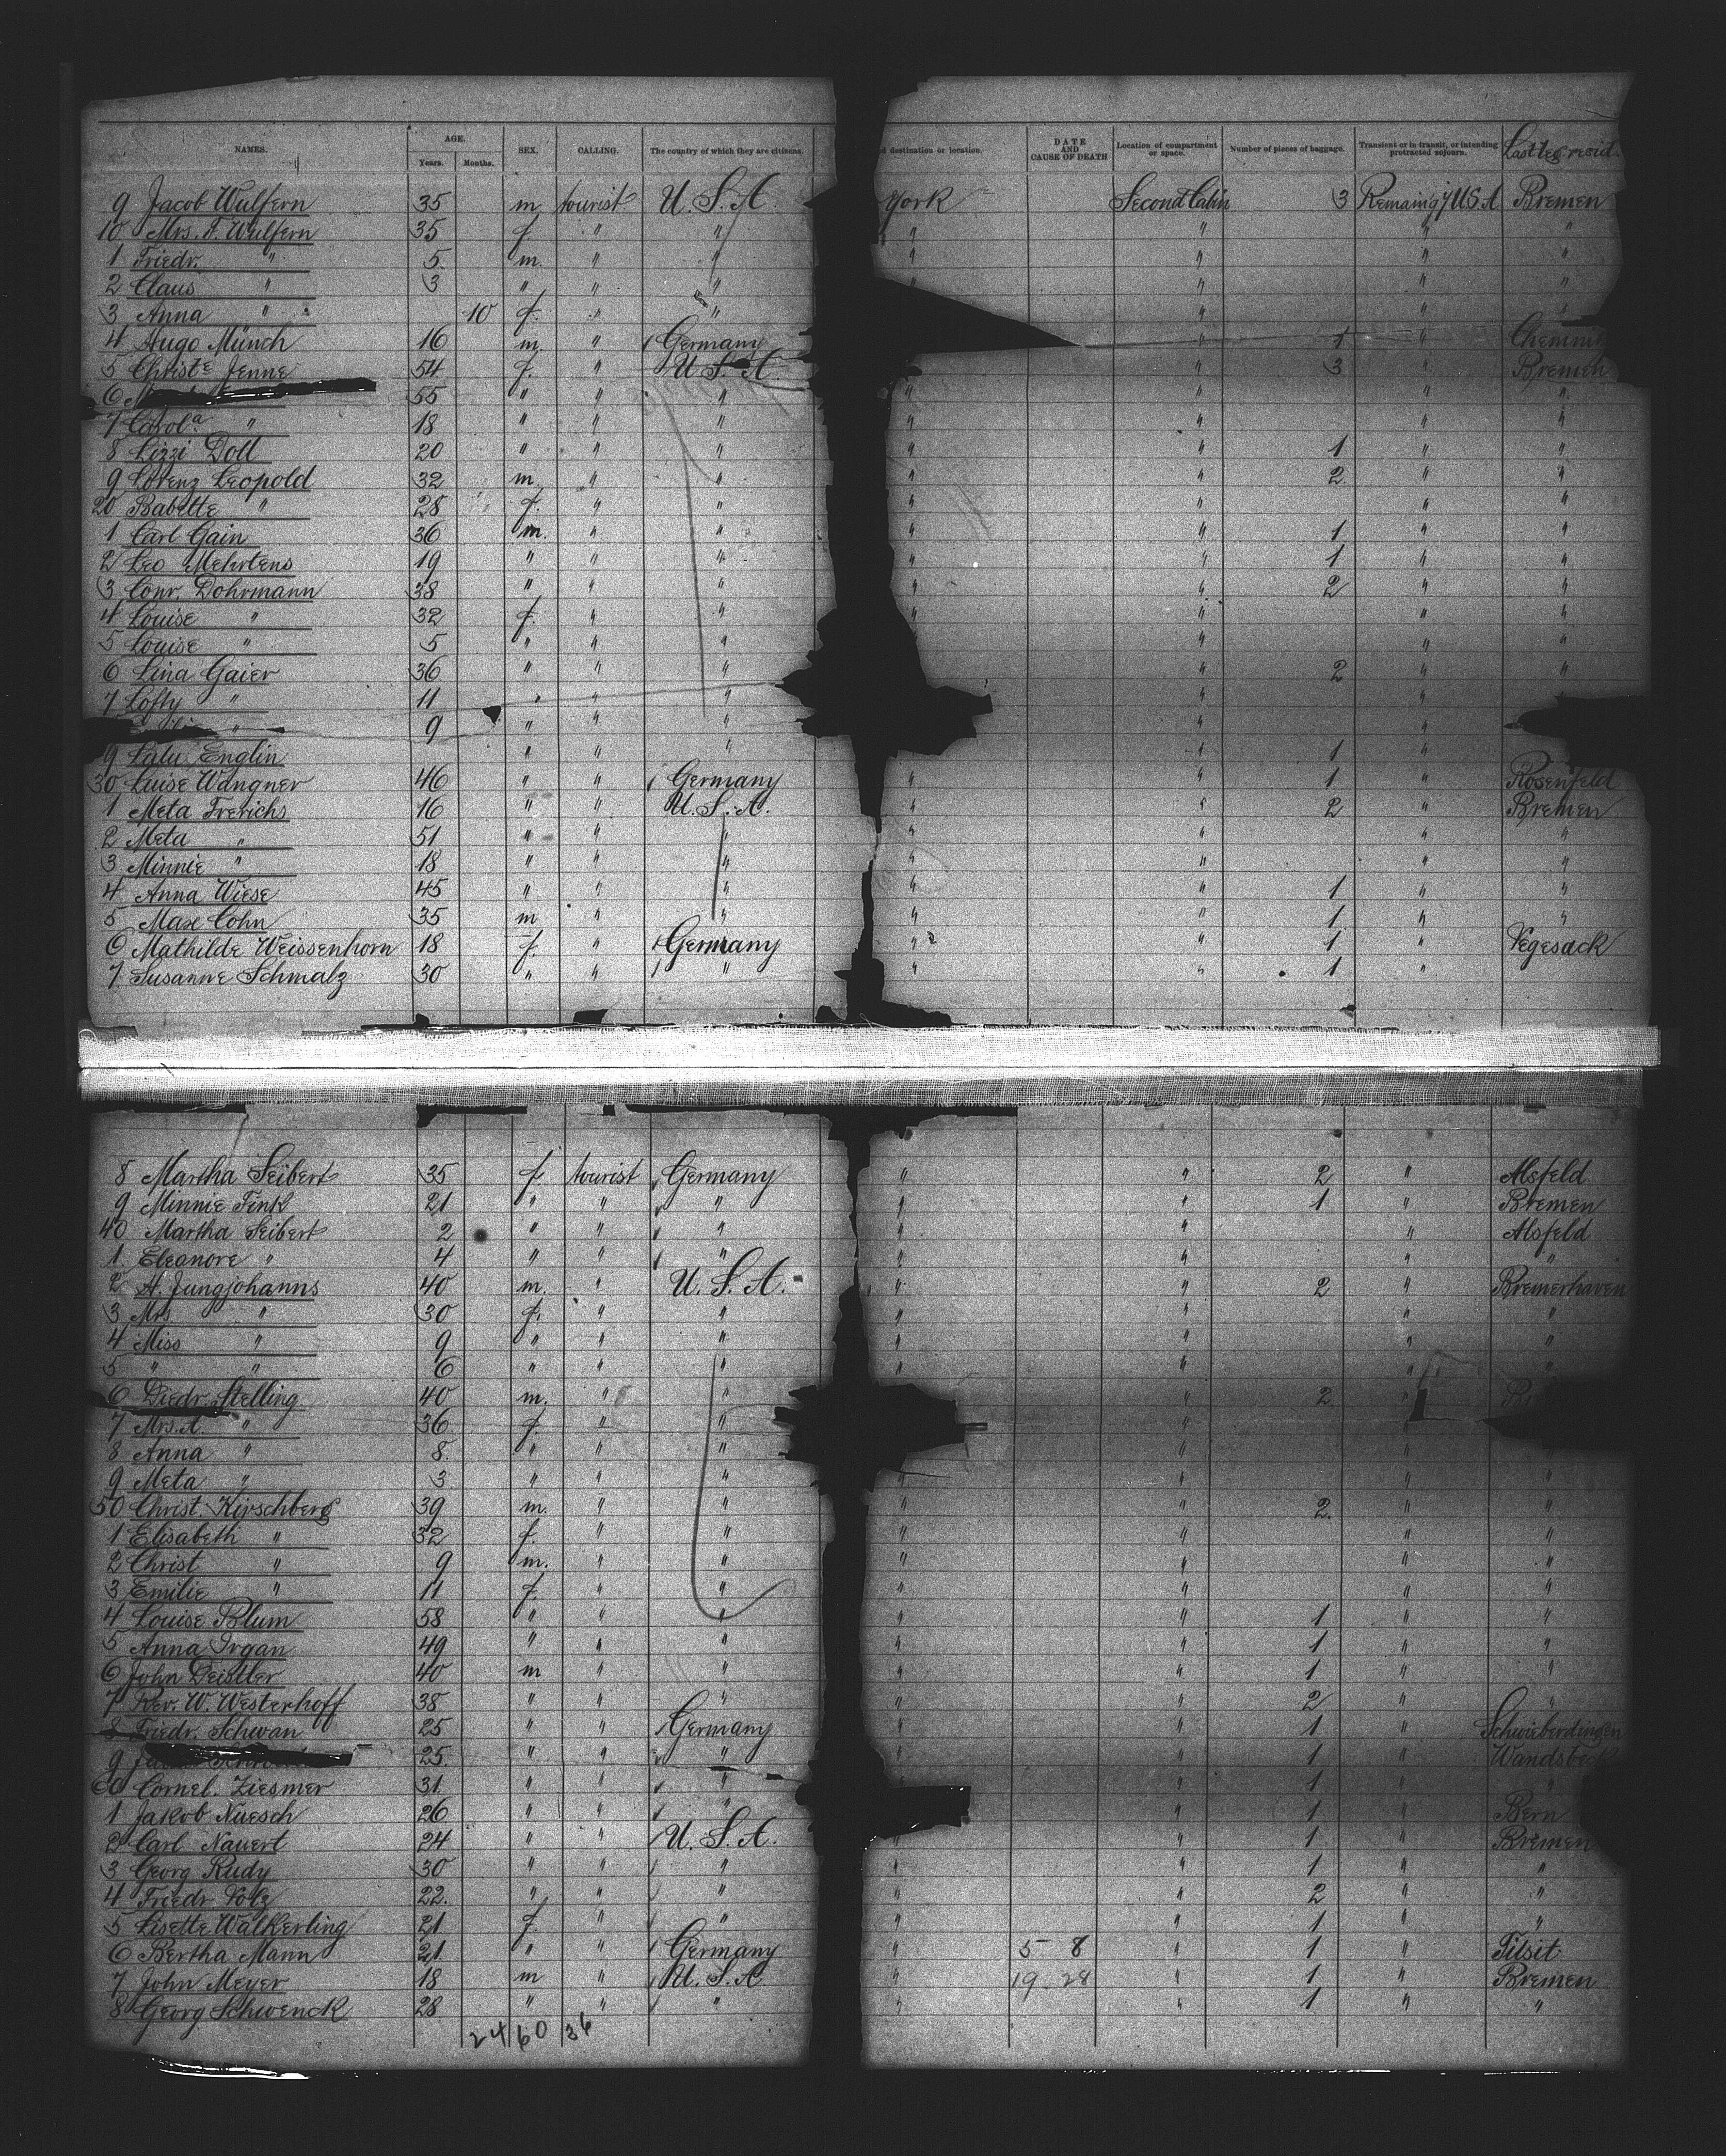 NAMES. AGE. Years. Months. SEX. CALLING. The country of which they are citizens. d destination or location. DATE AND CAUSE OF DEATH Location of compartment or space. Number of pieces of baggage. Transient or in transit, or intending protracted sojourn. Last leg. resid.
9 Jacob Wulfern 35 m. tourist U. S. A. York Second Cabin 3 Remaing i/ U.S.A. Bremen
10 Mrs. F. Wulfern 35 f. " " " " " "
1 Friedr. " 5 m. " " " " " "
2 Claus " 3 " " " " " " "
3 Anna " 10 f. " " " " "
4 Hugo Münch 16 m. " Germany " 1 " Chemni
5 Christe Jenne 54 f. " U. S. A. " 3 " Bremen
6 55 " " " " " " "
7 Carola " 18 " " " " " " "
8 Lizzi Doll 20 " " " " " 1 " "
9 Lorenz Leopold 32 m. " " " " 2 " "
20 Babette " 28 f. " " " " " "
1 Carl Gain 36 m. " " " " 1 " "
2 Leo Mehrtens 19 " " " " " 1 " "
3 Conr. Dohrmann 38 " " " " " 2 " "
4 Louise " 32 f. " " " " " "
5 Louise " 5 " " " " " " "
6 Lina Gaier 36 " " " " 2 " "
7 Lofty " 11 " " " " "
" 9 " " " " "
9 Lulu Englin " " " " 1 "
30 Luise Wangner 46 " " Germany " " 1 " Rosenfeld
1 Meta Frerichs 16 " " U. S. A. " " 2 " Bremen
2 Meta " 51 " " " " " " "
3 Minnie " 18 " " " " " " "
4 Anna Wiese 45 " " " " " 1 " "
5 Max Cohn 35 m " " " " 1 " "
6 Mathilde Weissenhorn 18 f. " Germany " " 1 " Vegesack
7 Susanne Schmalz 30 " " " " " 1 "
8 Martha Seibert 35 f. tourist Germany " " 2 " Alsfeld
9 Minnie Fink 21 " " " " " 1 " Bremen
40 Martha Seibert 2 " " " " " " Alsfeld
1 Eleanore " 4 " " " " " " "
2 H. Jungjohanns 40 m. " U. S. A. " " 2 " Bremerhaven
3 Mrs. " 30 f. " " " " " "
4 Miss " 9 " " " " " " "
5 " " 6 " " " " " " "
6 Diedr. Stelling 40 m. " " " 2 "
7 Mrs. A. " 36 f. " " " "
8 Anna " 8 " " " " " "
9 Meta " 3 " " " " " " "
50 Christ. Hirschberg 39 m. " " " " 2 " "
1 Elisabeth " 32 f. " " " " " "
2 Christ " 9 m. " " " " " "
3 Emilie " 11 f. " " " " " "
4 Louise Blum 58 " " " " " 1 " "
5 Anna Irgan 49 " " " " " 1 " "
6 John Deistler 40 m " " " " 1 " "
7 Rev. W. Westerhoff 38 " " " " " 2 " "
8 Friedr. Schwan 25 " " Germany " " 1 " Schwieberdingen
9 25 " " " " " 1 " Wandsbeck
60 Cornel. Ziesmer 31 " " " " " 1 " "
1 Jakob Nuesch 26 " " " " 1 " Bern
2 Carl Nauert 24 " " U. S. A. " 1 " Bremen
3 Georg Rudy 30 " " " " " 1 " "
4 Friedr. Volz 22 " " " " " 2 " "
5 Lisette Walkerling 21 f. " " " " 1 " "
6 Bertha Mann 21 " " Germany " 5 8 " 1 " Tilsit
7 John Meyer 18 m " U. S. A. " 19 28 " 1 " Bremen
8 Georg Schwenck 28 " " " " " 1 " "
24 60 36